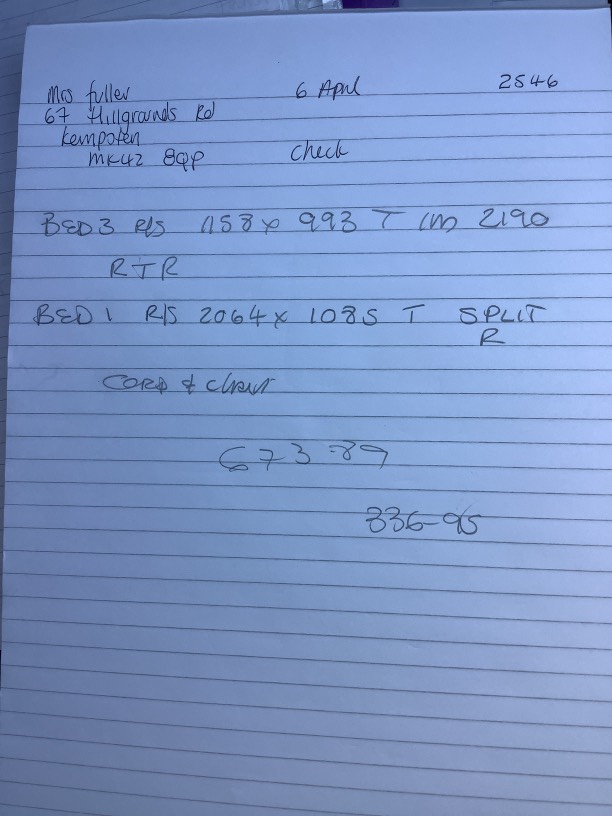 Mrs fuller 6 April 2546
67 Hillgrounds Rd
Kempoten
MK42 8QP check
BED 3 R/S 1158 x 993 T 2190
RTR
BED 1 R/S 2064 x 1085 T SPLIT
R
CORD &
673-89
336-95